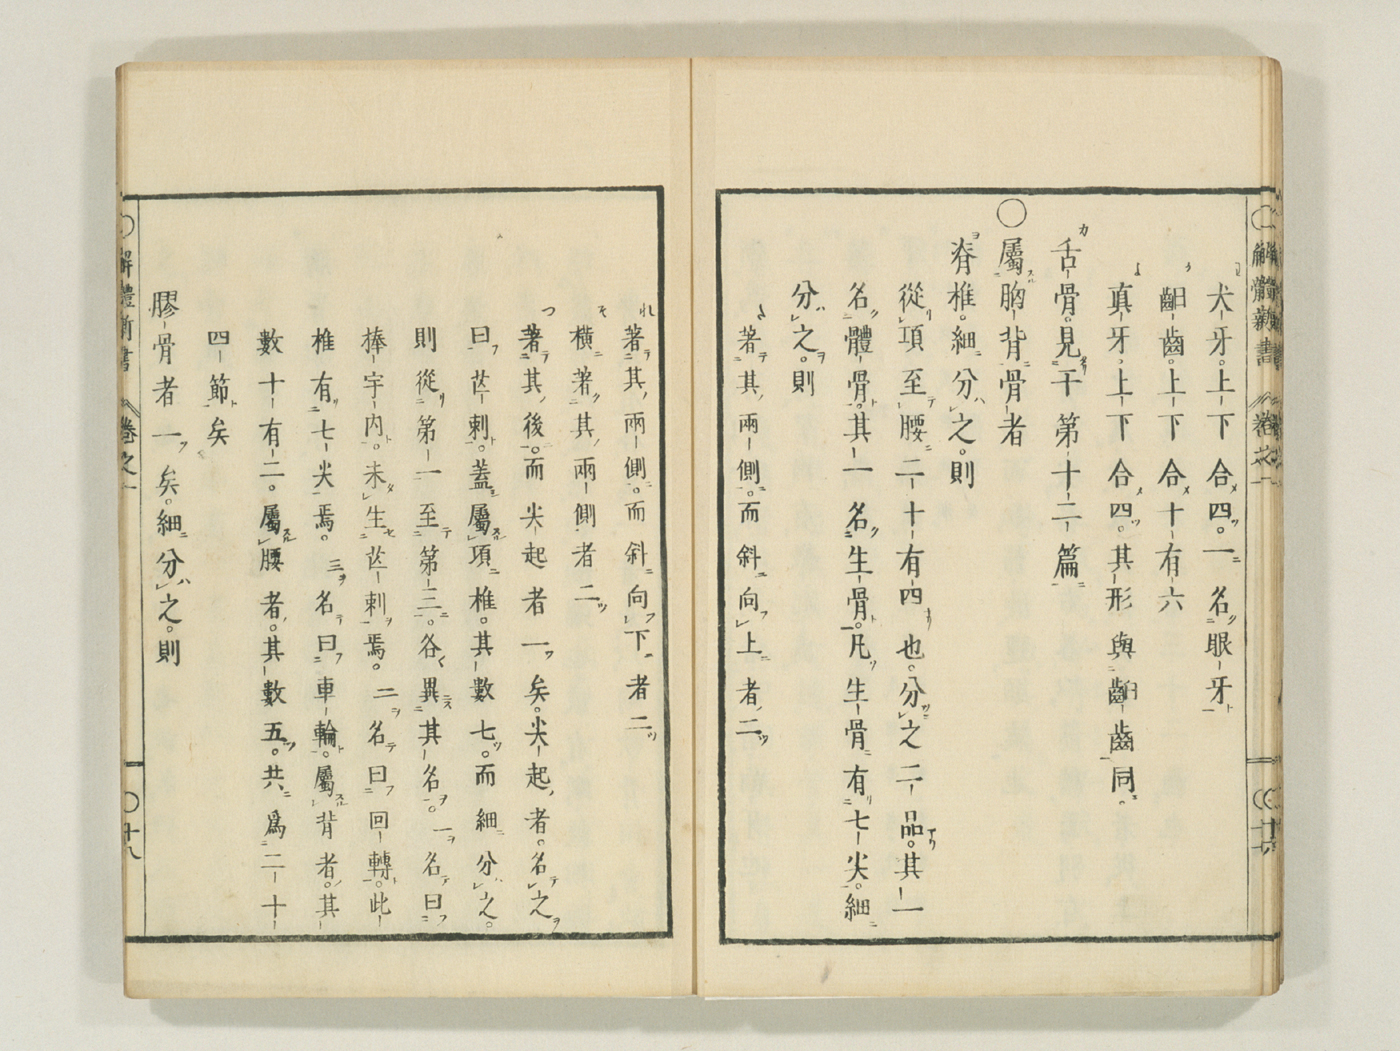 犬牙。上下合四。一名眼牙
齝齒。上下合十有六
真牙。上下合四。其形與齝齒同。
舌骨。見于第十二篇
○屬胸背骨者
脊椎。細分之。則
從項至腰二十有四也。分之二品。其一
名體骨。其一名生骨。凡生骨有七尖。細
分之。則
著其兩側。而斜向上者二
著其兩側。而斜向下者二
橫著其兩側者二
著其後。而尖起者一矣。尖起者。名之
曰芒刺。蓋屬項椎。其數七。而細分之。
則從第一至第三。各異其名。一名曰
捧宇內。未生芒刺焉。二名曰回轉。此
椎有七尖焉。三名曰車輪。屬背者。其
數十有二。屬腰者。其數五。共爲二十
四節矣
膠骨者一矣。細分之。則
解體新書 卷之一
十八